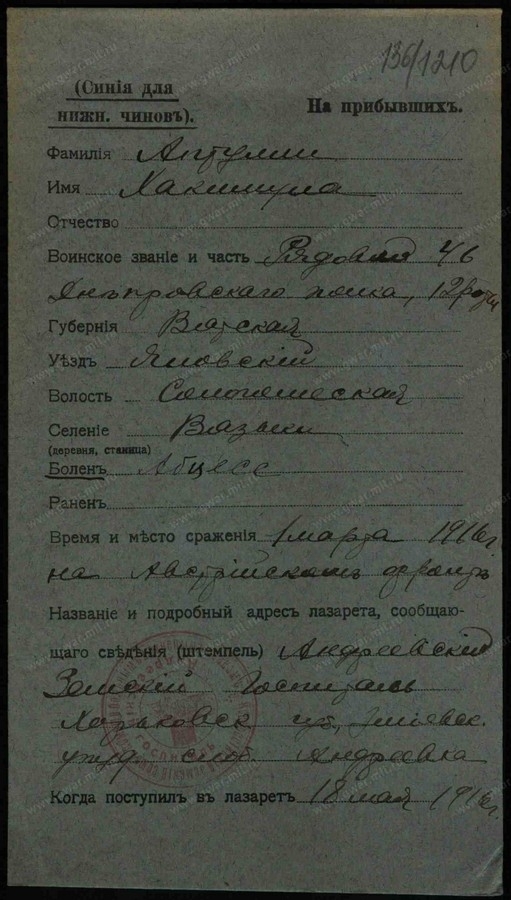 136/1210
(Синія для
нижн. чиновъ).
На прибывшихъ.
Фамилія Аптулин
Имя Хакимула
Отчество
Воинское званіе и часть Рядовой 46
Днѣпровскаго полка, 12 роты
Губернія Вятская
Уѣздъ
Волость
Селеніе Вязьки
(деревня, станица)
Боленъ Абцесс
Раненъ
Время и мѣсто сраженія 1 марта 1916 г.
на Австрійскомъ фронтѣ
Названіе и подробный адресъ лазарета, сообщаю-
щаго свѣдѣнія (штемпель) Андреевскій
Земскій Госпиталь
Харьковск губ., Зміевск.
уѣзд. слоб. Андреевка
Когда поступилъ въ лазаретъ 18 мая 1916 г.
www.gwar.mil.ru